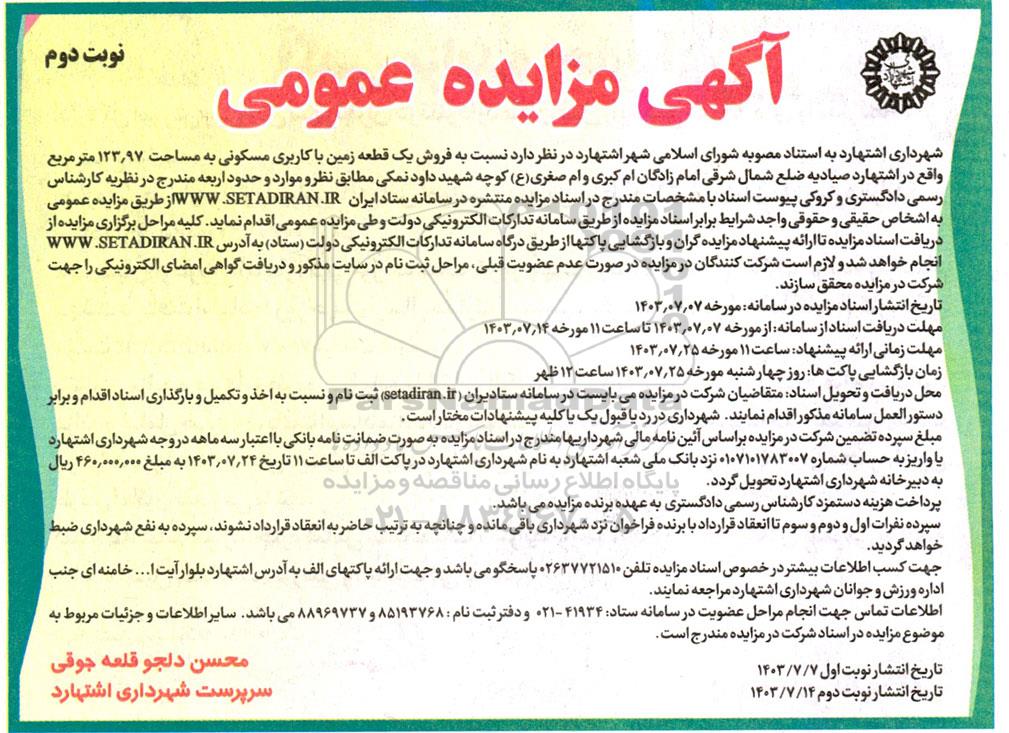 نوبت دوم
آگهی مزایده عمومی
شهرداری اشتهارد به استناد مصوبه شورای اسلامی شهر اشتهارد در نظر دارد نسبت به فروش یک قطعه زمین با کاربری مسکونی به مساحت ۱۲۳٫۹۷ متر مربع
واقع در اشتهارد صیادیه ضلع شمال شرقی امام زادگان ام کبری و ام صغری(ع) کوچه شهید داود نمکی مطابق نظر و موارد و حدود اربعه مندرج در نظریه کارشناس
رسمی دادگستری و کروکی پیوست اسناد با مشخصات مندرج در اسناد مزایده منتشره در سامانه ستاد ایران WWW.SETADIRAN.IR از طریق مزایده عمومی
به اشخاص حقیقی و حقوقی واجد شرایط برابر اسناد مزایده از طریق سامانه تدارکات الکترونیکی دولت و طی مزایده عمومی اقدام نماید. کلیه مراحل برگزاری مزایده از
دریافت اسناد مزایده تا ارائه پیشنهاد مزایده گران و بازگشایی پاکتها از طریق درگاه سامانه تدارکات الکترونیکی دولت (ستاد) به آدرس WWW.SETADIRAN.IR
انجام خواهد شد و لازم است شرکت کنندگان در مزایده در صورت عدم عضویت قبلی، مراحل ثبت نام در سایت مذکور و دریافت گواهی امضای الکترونیکی را جهت
شرکت در مزایده محقق سازند.
تاریخ انتشار اسناد مزایده در سامانه: مورخه ۱۴۰۳٫۰۷٫۰۷
مهلت دریافت اسناد از سامانه: از مورخه ۱۴۰۳٫۰۷٫۰۷ تا ساعت ۱۱ مورخه ۱۴۰۳٫۰۷٫۱۴
مهلت زمانی ارائه پیشنهاد: ساعت ۱۱ مورخه ۱۴۰۳٫۰۷٫۲۵
زمان بازگشایی پاکت ها: روز چهار شنبه مورخه ۱۴۰۳٫۰۷٫۲۵ ساعت ۱۲ ظهر
محل دریافت و تحویل اسناد: متقاضیان شرکت در مزایده می بایست در سامانه ستاد یران (setadiran.ir) ثبت نام و نسبت به اخذ و تکمیل و بارگذاری اسناد اقدام و برابر
دستور العمل سامانه مذکور اقدام نمایند. شهرداری در رد یا قبول یک یا کلیه پیشنهادات مختار است.
مبلغ سپرده تضمین شرکت در مزایده براساس آئین نامه مالی شهرداریها مندرج در اسناد مزایده به صورت ضمانت نامه بانکی با اعتبار سه ماهه در وجه شهرداری اشتهارد
یا واریز به حساب شماره ۰۱۰۷۱۰۱۷۸۳۰۰۷ نزد بانک ملی شعبه اشتهارد به نام شهرداری اشتهارد در پاکت الف تا ساعت ۱۱ تاریخ ۱۴۰۳٫۰۷٫۲۴ به مبلغ ۴۶۰٫۰۰۰٫۰۰۰ ریال
به دبیرخانه شهرداری اشتهارد تحویل گردد.
پرداخت هزینه دستمزد کارشناس رسمی دادگستری به عهده برنده مزایده می باشد.
سپرده نفرات اول و دوم و سوم تا انعقاد قرارداد با برنده فراخوان نزد شهرداری باقی مانده و چنانچه به ترتیب حاضر به انعقاد قرارداد نشوند، سپرده به نفع شهرداری ضبط
خواهد گردید.
جهت کسب اطلاعات بیشتر در خصوص اسناد مزایده تلفن ۰۲۶۳۷۷۲۱۵۱۰ پاسخگو می باشد و جهت ارائه پاکتهای الف به آدرس اشتهارد بلوار آیت ا... خامنه ای جنب
اداره ورزش و جوانان شهرداری اشتهارد مراجعه نمایند.
اطلاعات تماس جهت انجام مراحل عضویت در سامانه ستاد: ۴۱۹۳۴ -۰۲۱ و دفتر ثبت نام : ۸۵۱۹۳۷۶۸ و ۸۸۹۶۹۷۳۷ می باشد. سایر اطلاعات و جزئیات مربوط به
موضوع مزایده در اسناد شرکت در مزایده مندرج است.
تاریخ انتشار نوبت اول ۱۴۰۳/۷/۷
تاریخ انتشار نوبت دوم ۱۴۰۳/۷/۱۴
محسن دلجو قلعه جوقی
سرپرست شهرداری اشتهارد
پایگاه اطلاع رسانی مناقصه و مزایده